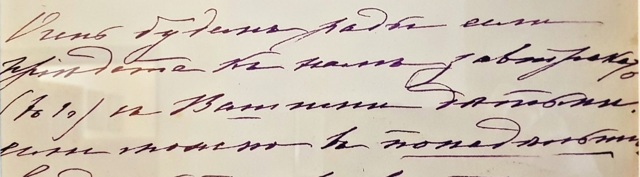 Очень будемъ рады если
пріѣдете къ намъ завтракать
съ Вашими дѣтьми.
если можно въ понедѣльн